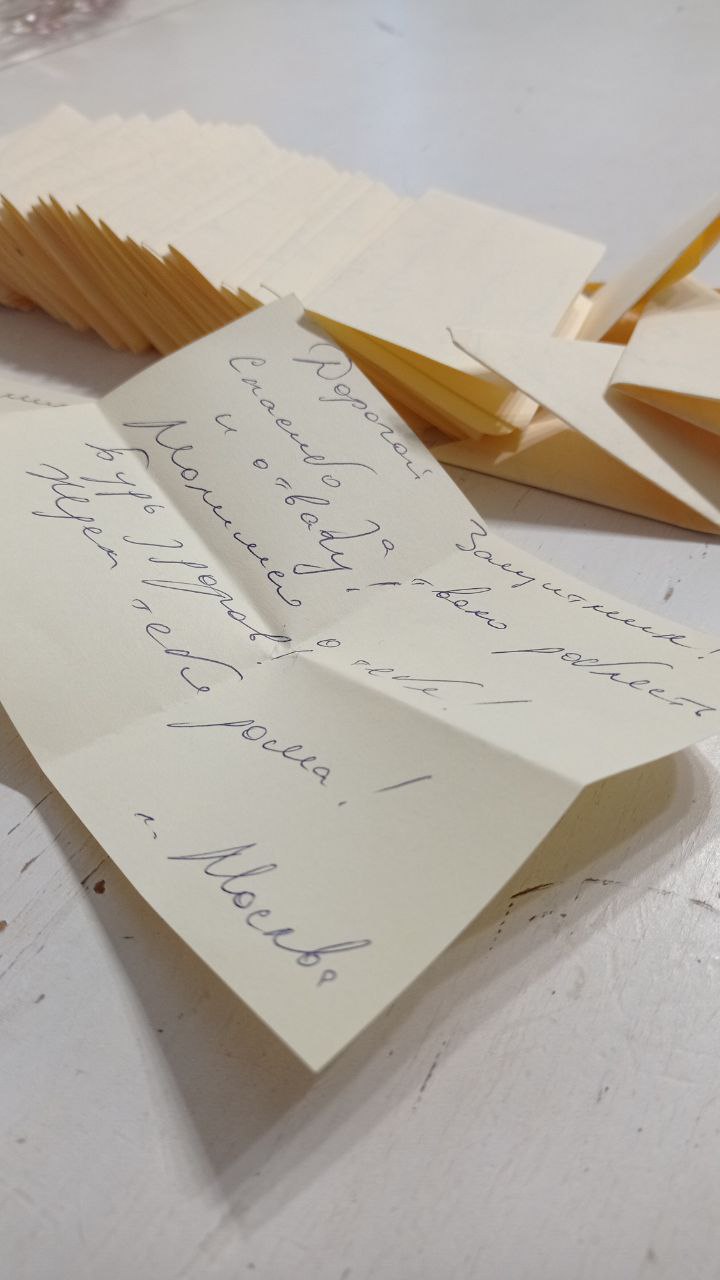 Дорогой Защитник!
Спасибо за твою доблесть
и отвагу!
Молимся о тебе!
Будь здоров!
Ждем тебя дома!
г. Москва